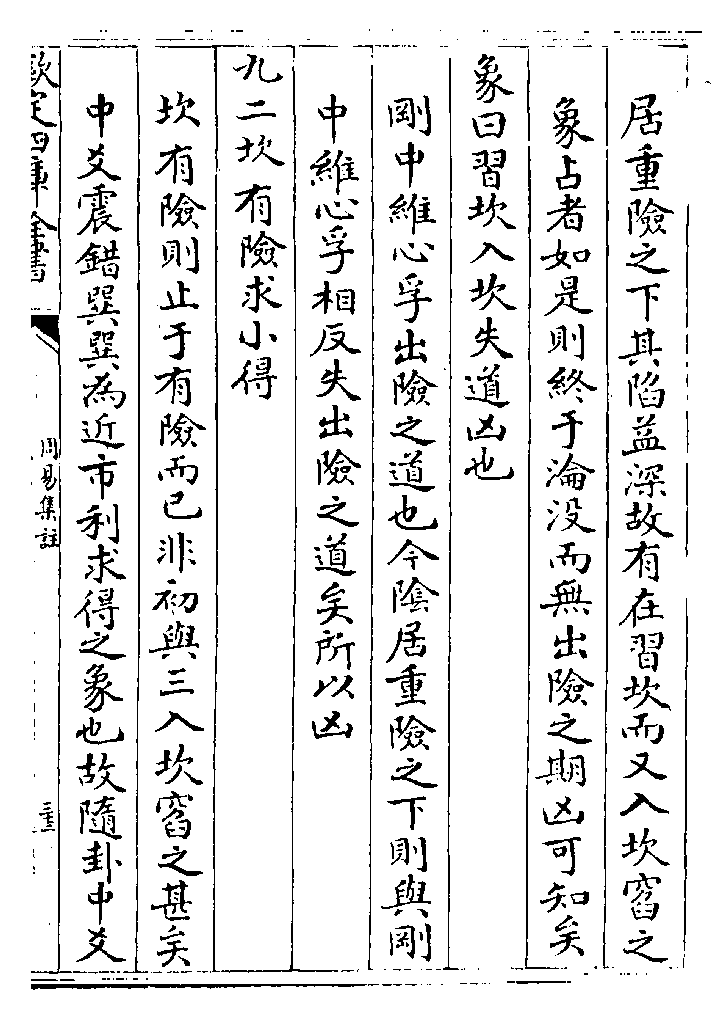 居重險之下其陷益深故有在習坎而又入坎窞之
象占者如是則終于淪没而無出險之期凶可知矣
象曰習坎入坎失道凶也
剛中維心孚出險之道也今陰居重險之下則與剛
中維心孚相反失出險之道矣所以凶
九二坎有險求小得
坎有險則止于有險而已非初與三入坎窞之甚矣
中爻震錯巽巽為近市利求得之象也故隨卦中爻
欽定四庫全書
周易集註